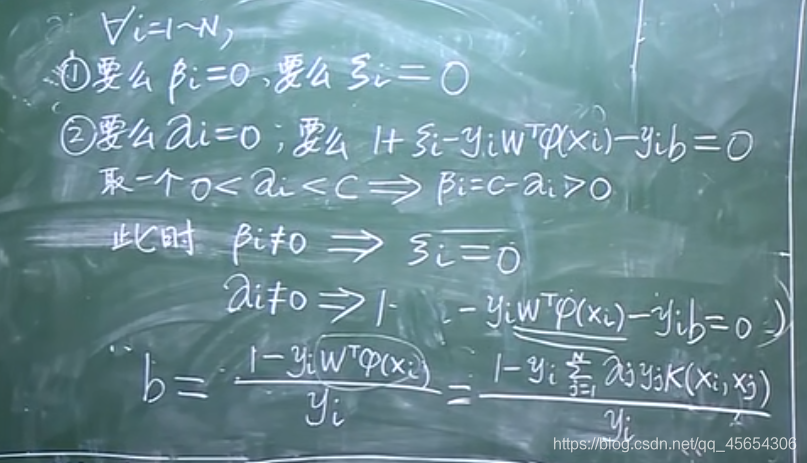 ∀i=1~N,
①要么 βi=0,要么 ξi=0
②要么 αi=0;要么 1+ξi-yiWᵀφ(xi)-yib=0
取一个 0<αi<C ⟹ βi=c-αi>0
此时 βi≠0 ⟹ ξi=0
αi≠0 ⟹ 1- -yiWᵀφ(xi)-yib=0 )
b = (1-yiWᵀφ(xi))/yi = (1-yi ∑_{j=1}^{N} αjyjK(xi,xj))/yi
https://blog.csdn.net/qq_45654306